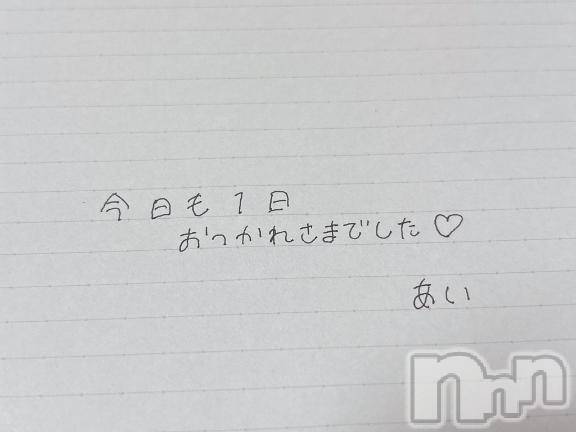 今日も1日
おつかれさまでした♡
あい
nnn